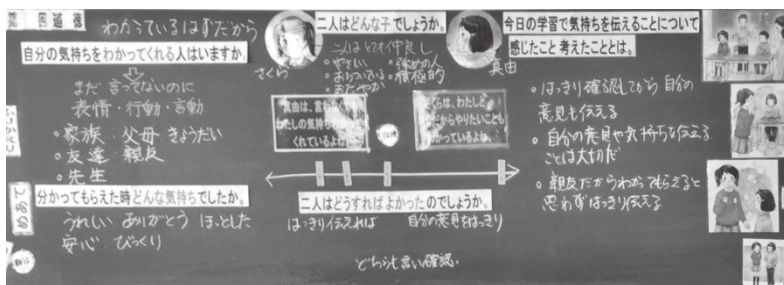 道徳
わかっているはずだから
自分の気持ちをわかってくれる人はいますか
まだ言ってないのに
表情・行動・言動
・家族 父母 きょうだい
・友達 親友
・先生
めあて
分かってもらえた時どんな気持ちでしたか。
うれしい ありがとう ほっとした
安心 びっくり
二人はどんな子でしょうか。
さくら
真由
二人はとても仲良し
・やさしい
・おだやか
・強めの人
・積極的
真由は、言わなくても
わたしの気持ち
くれているよね
さくらは、わたしと
だからやりたいことも
かっているよね
二人はどうすればよかったのでしょうか。
はっきり伝えれば
自分の意見をはっきり
どちらも言い確認。
今日の学習で気持ちを伝えることについて
感じたこと 考えたこととは。
・はっきり確認してから自分の
意見も伝える
・自分の意見や気持ちを伝える
ことは大切だ
・親友だからわかってもらえると
思わずはっきり伝える